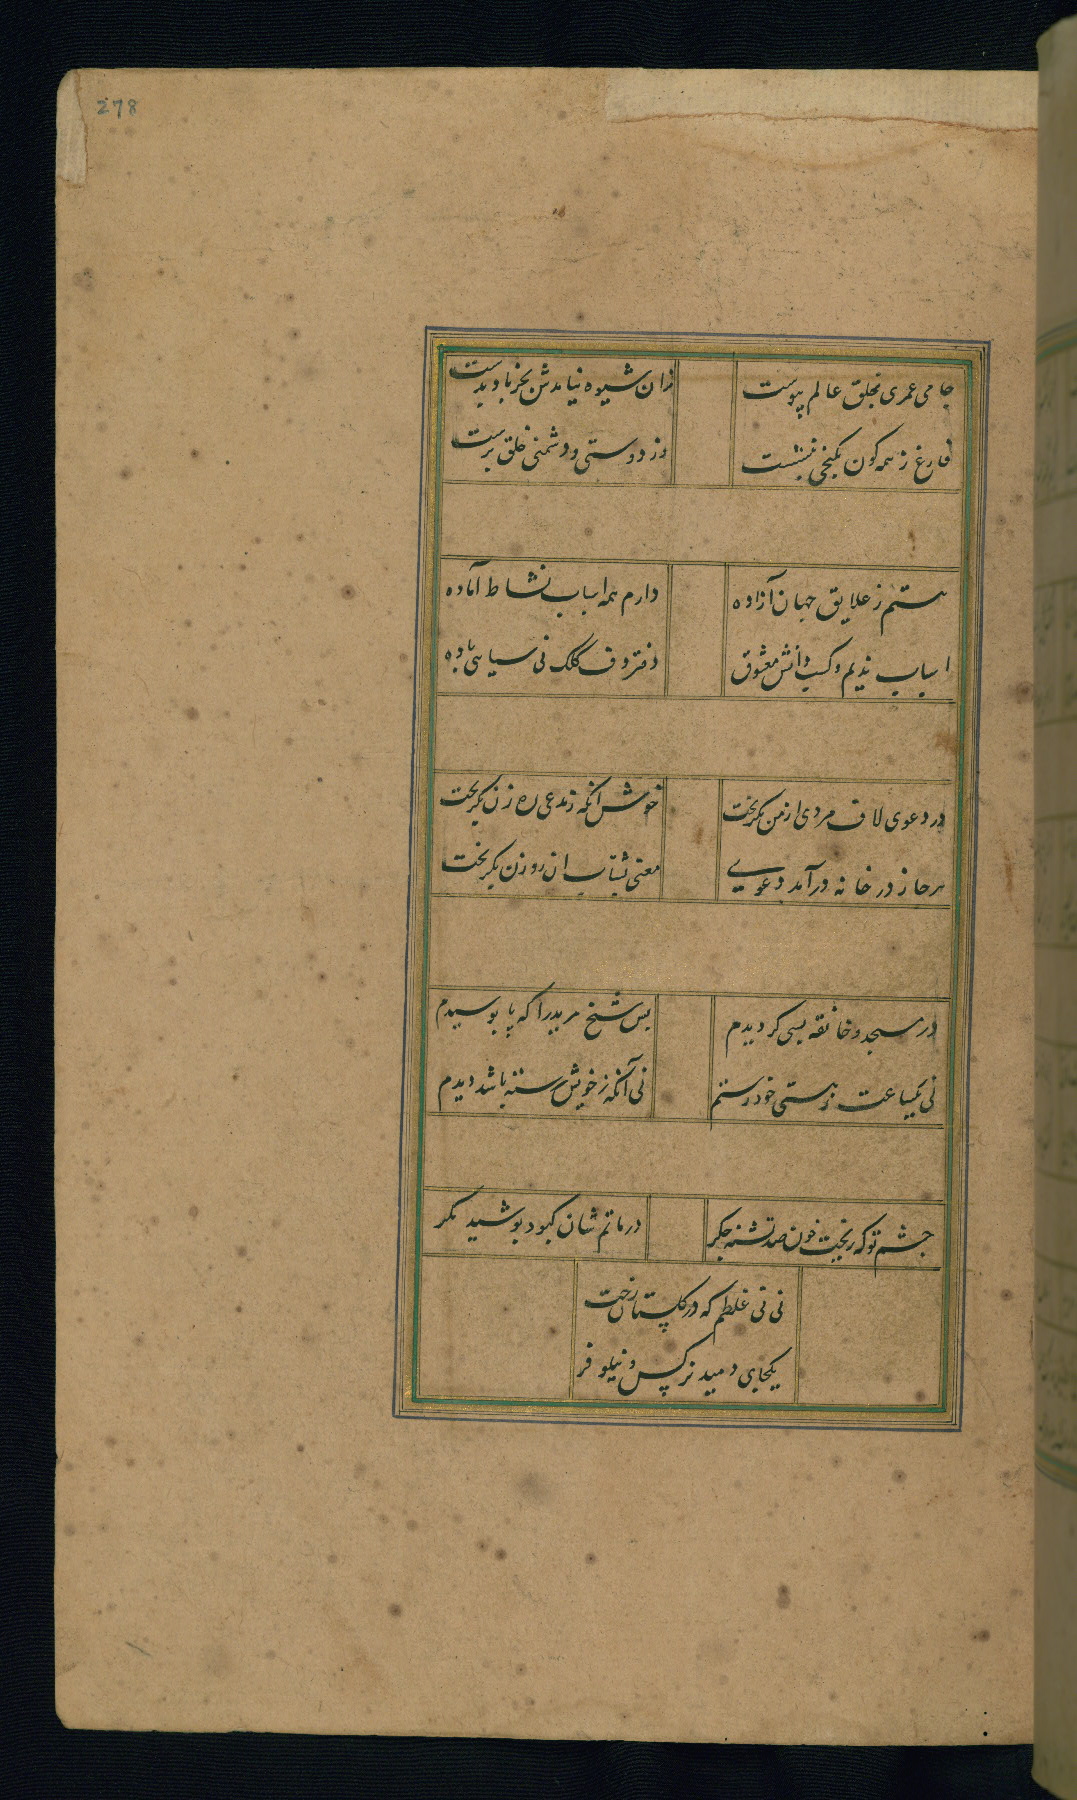 278
جامی عمری بخلق عالم پیوست
زان شیوه نیامدش بجز باد بدست
فارغ ز همه کون بکنجی بنشست
وز دوستی و دشمنی خلق برست
هستم ز علایق جهان آزاده
دارم همه اسباب نشاط آماده
اسباب ندیم و کسب دانش معشوق
دفتر دف کلک نی سیاهی باده
در دعوی لاف مردی از من بگریخت
خوش آنکه ز مدعی ره زن بگریخت
هرجا ز در خانه درآمد دعویی
معنی بشتاب از روزن بگریخت
در مسجد و خانقه بسی گردیدم
بس شیخ مریدرا که پا بوسیدم
نی یکساعت ز هستی خود رستم
نی آنکه ز خویش رسته باشد دیدم
چشم تو که ریخت خون صد تشنه جگر
در ماتم شان کبود پوشید مگر
نی نی غلطم که در گلستان رخت
یکجای دمید نرگس و نیلوفر